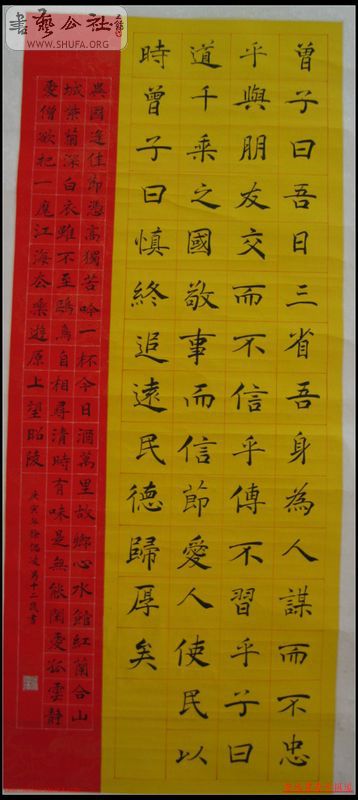 書藝公社
WWW.SHUFA.ORG
曾子曰吾日三省吾身為人謀而不忠
乎與朋友交而不信乎傳不習乎子曰
道千乘之國敬事而信節愛人使民以
時曾子曰慎終追遠民德歸厚矣
異國逢佳節憑高獨苦吟一杯今日酒萬里故鄉心水館紅蘭合山
城紫菊深白衣雖不至鷗鳥自相尋清時有味是無能閑愛孤雲靜
愛僧欲把一麾江海去樂遊原上望昭陵
庚寅年徐 男十二歲書